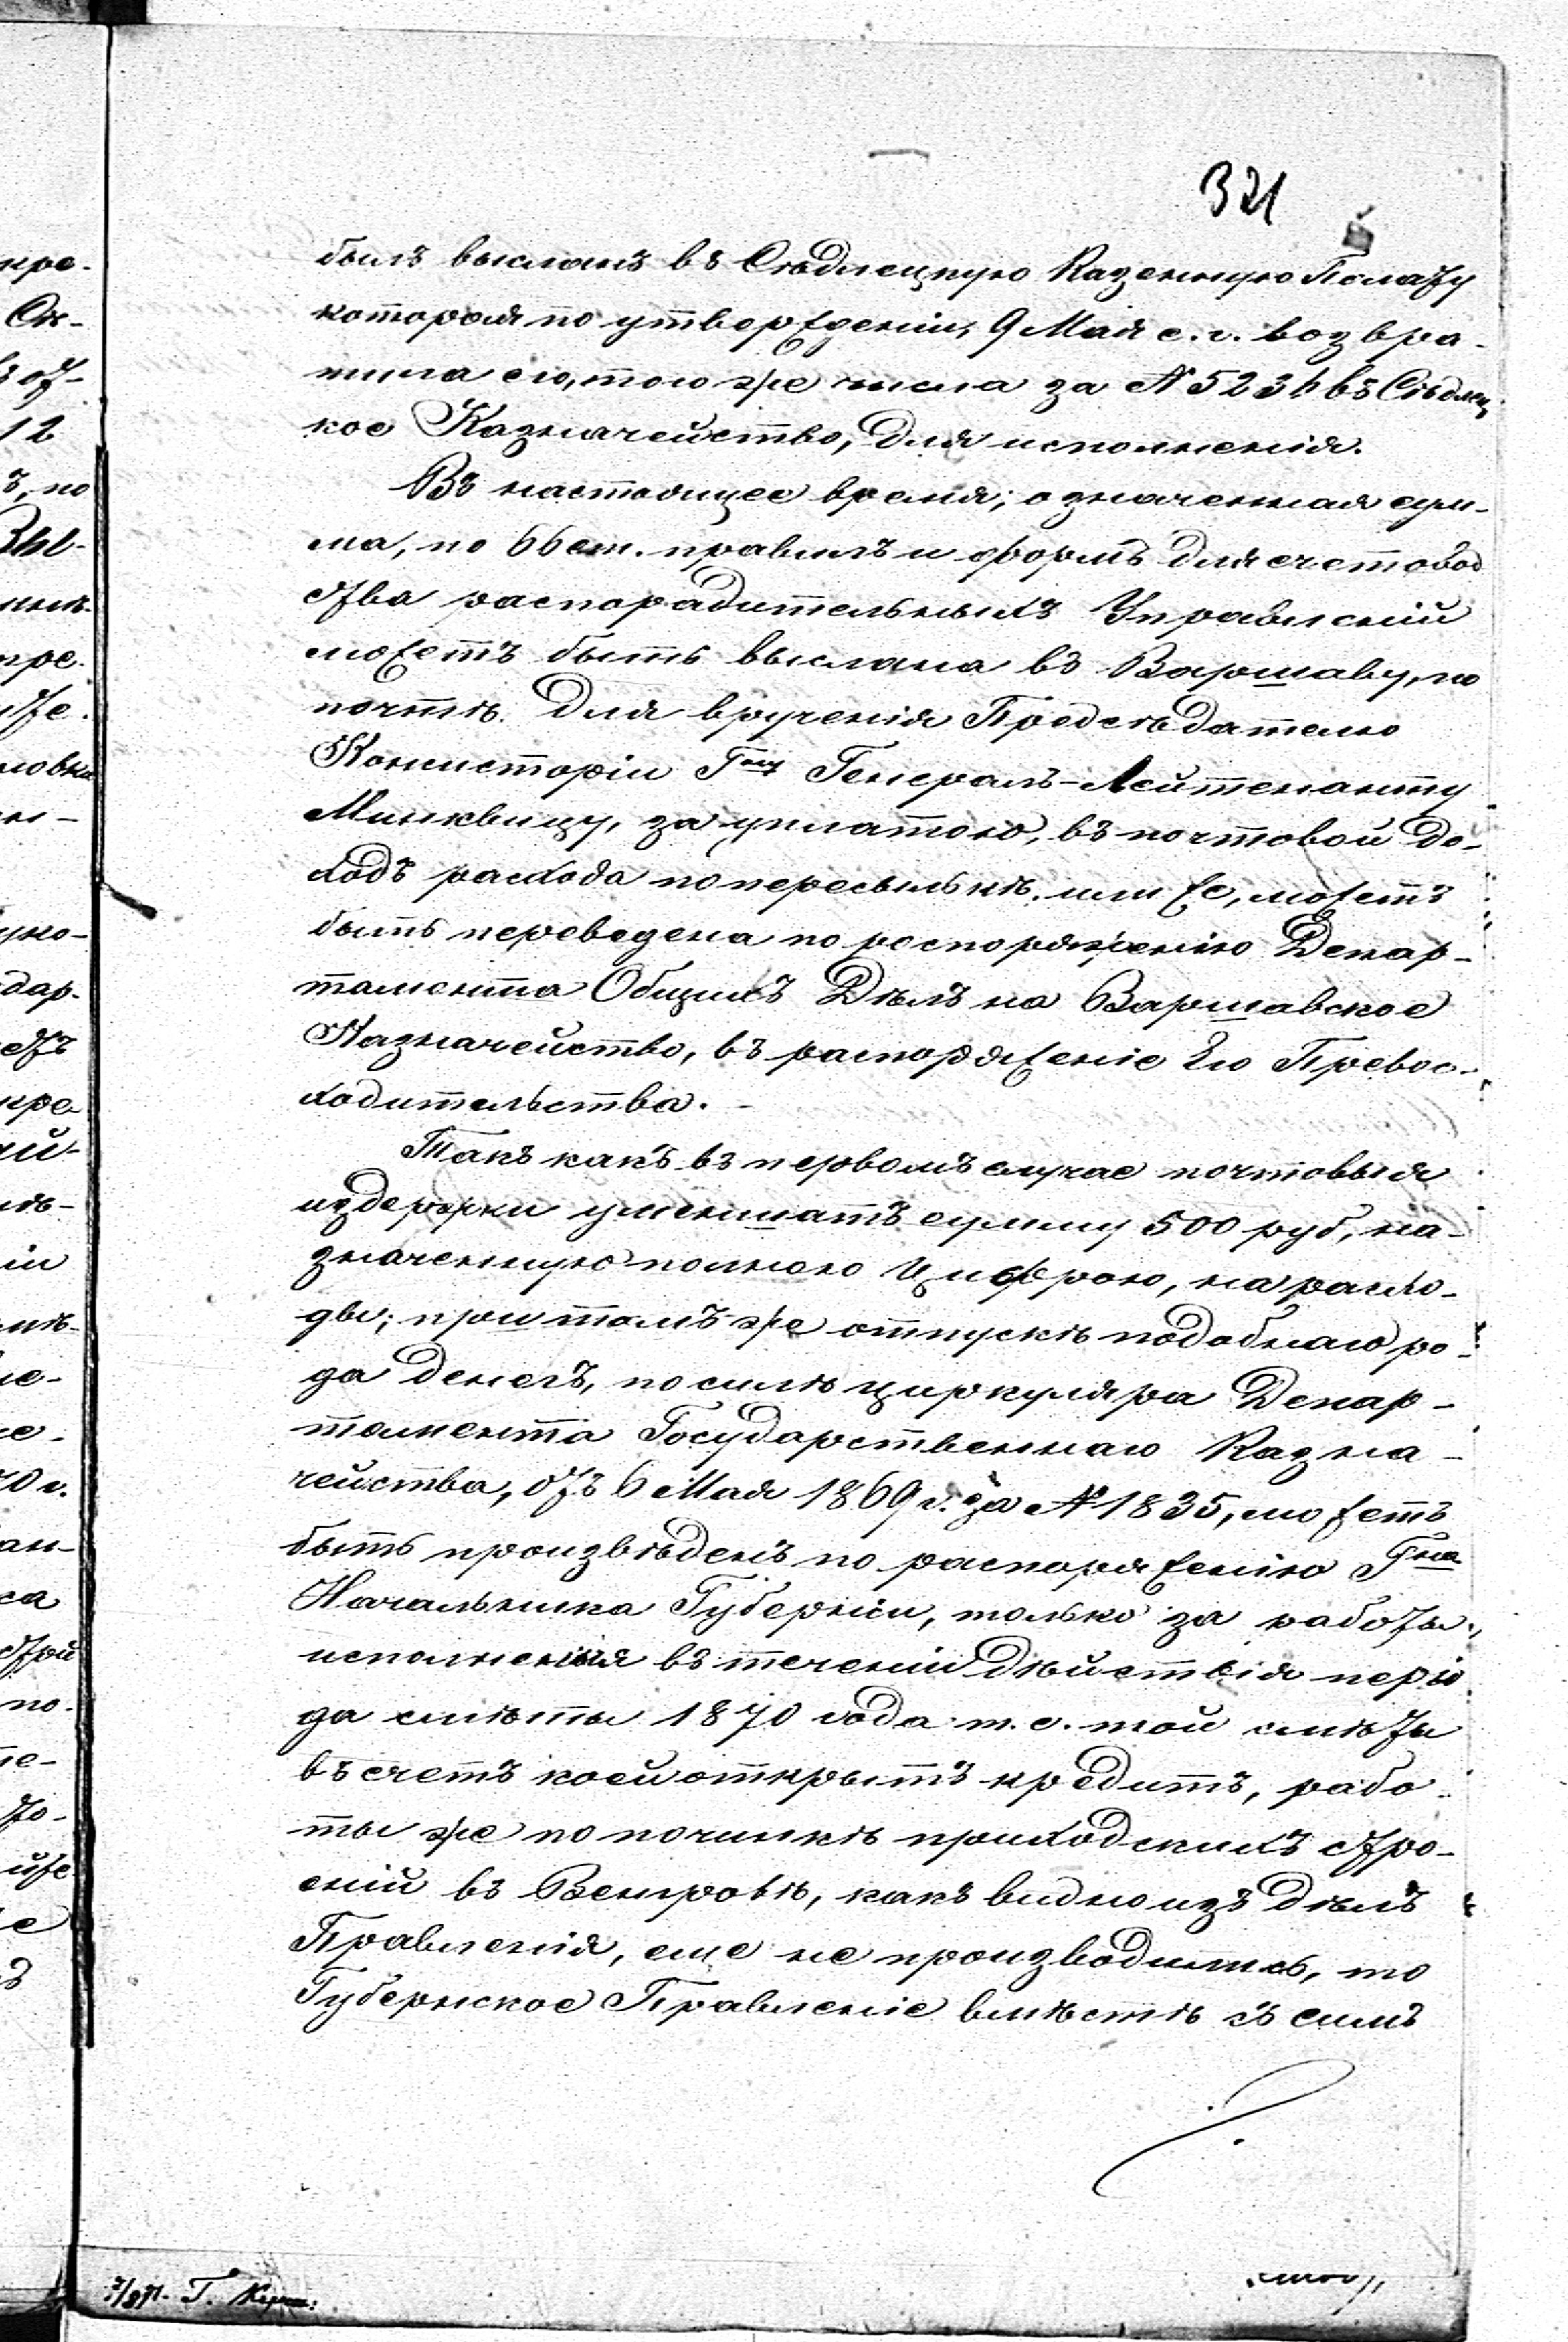 321
былъ высланъ въ Сѣдлецкую Казенную Палату
которая по утвержденіи, 9 Мая с.г. возвра-
тила его, того же числа за № 5236 въ Сѣдлец
кое Казначейство, для исполненія.
Въ настоящее время, означенная сум-
ма, по 66 ст. правилъ и формъ для счетовод
ства распорадительныхъ Управленій
можетъ быть выслана въ Варшаву, по
почтѣ. Для врученія Предсѣдателю
Консисторіи Гну Генералъ-Лейтенанту
Минквицу, за уплатою, въ почтовой до-
ходъ расхода по пересылкѣ. или же, можетъ
быть переведена по распоряженію Депар-
тамента Общихъ Дѣлъ на Варшавское
Казначейство, въ распоряженіе Его Превос-
ходительства. -
Такъ какъ въ первомъ случае почтовыя
издержки уменшатъ сумму 500 руб, на-
значенную полною Цифрою, на расхо-
ды; при томъ-же отпускъ подобнаго ро-
да денегъ, по силѣ циркуляра Депар-
тамента Государственнаго Казна-
чейства, отъ 6 Мая 1869 г. за № 1835, можетъ
быть произвѣденъ по распоряженію Гна
Начальника Губерніи, только за работы,
исполненія въ теченіи дѣйствія періо
да смѣты 1870 года т.е. той смѣты
въ счетъ коей открытъ кредитъ, рабо-
ты же по починкѣ приходскихъ стро-
еній въ Венгровѣ, какъ видно изъ дѣлъ
Правленія, еще не производились, то
Губернское Правленіе вмѣстѣ съ симъ